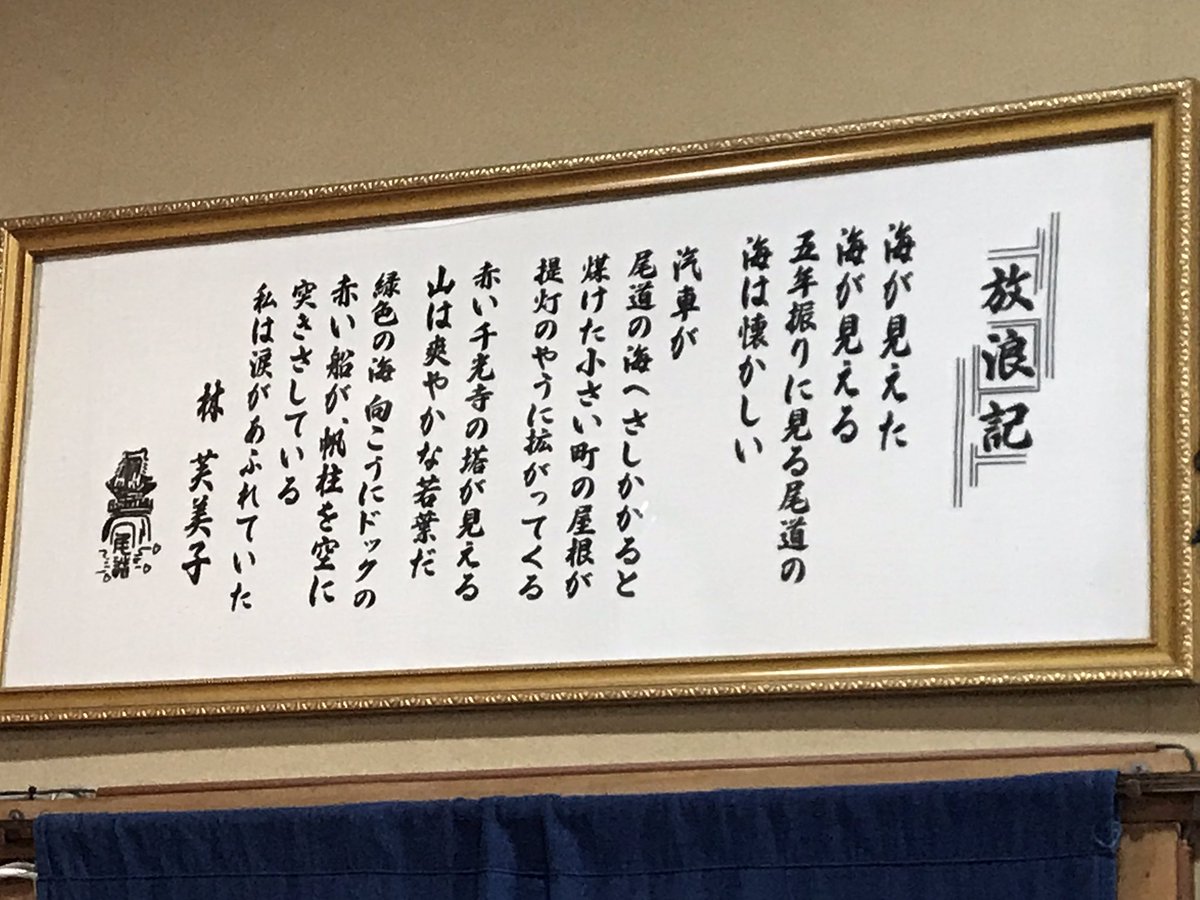 放浪記
海が見えた
海が見える
五年振りに見る尾道の
海は懐かしい
汽車が
尾道の海へさしかかると
煤けた小さい町の屋根が
提灯のやうに拡がってくる
赤い千光寺の塔が見える
山は爽やかな若葉だ
緑色の海向こうにドックの
赤い船が、帆柱を空に
突きさしている
私は涙があふれていた
林 芙美子